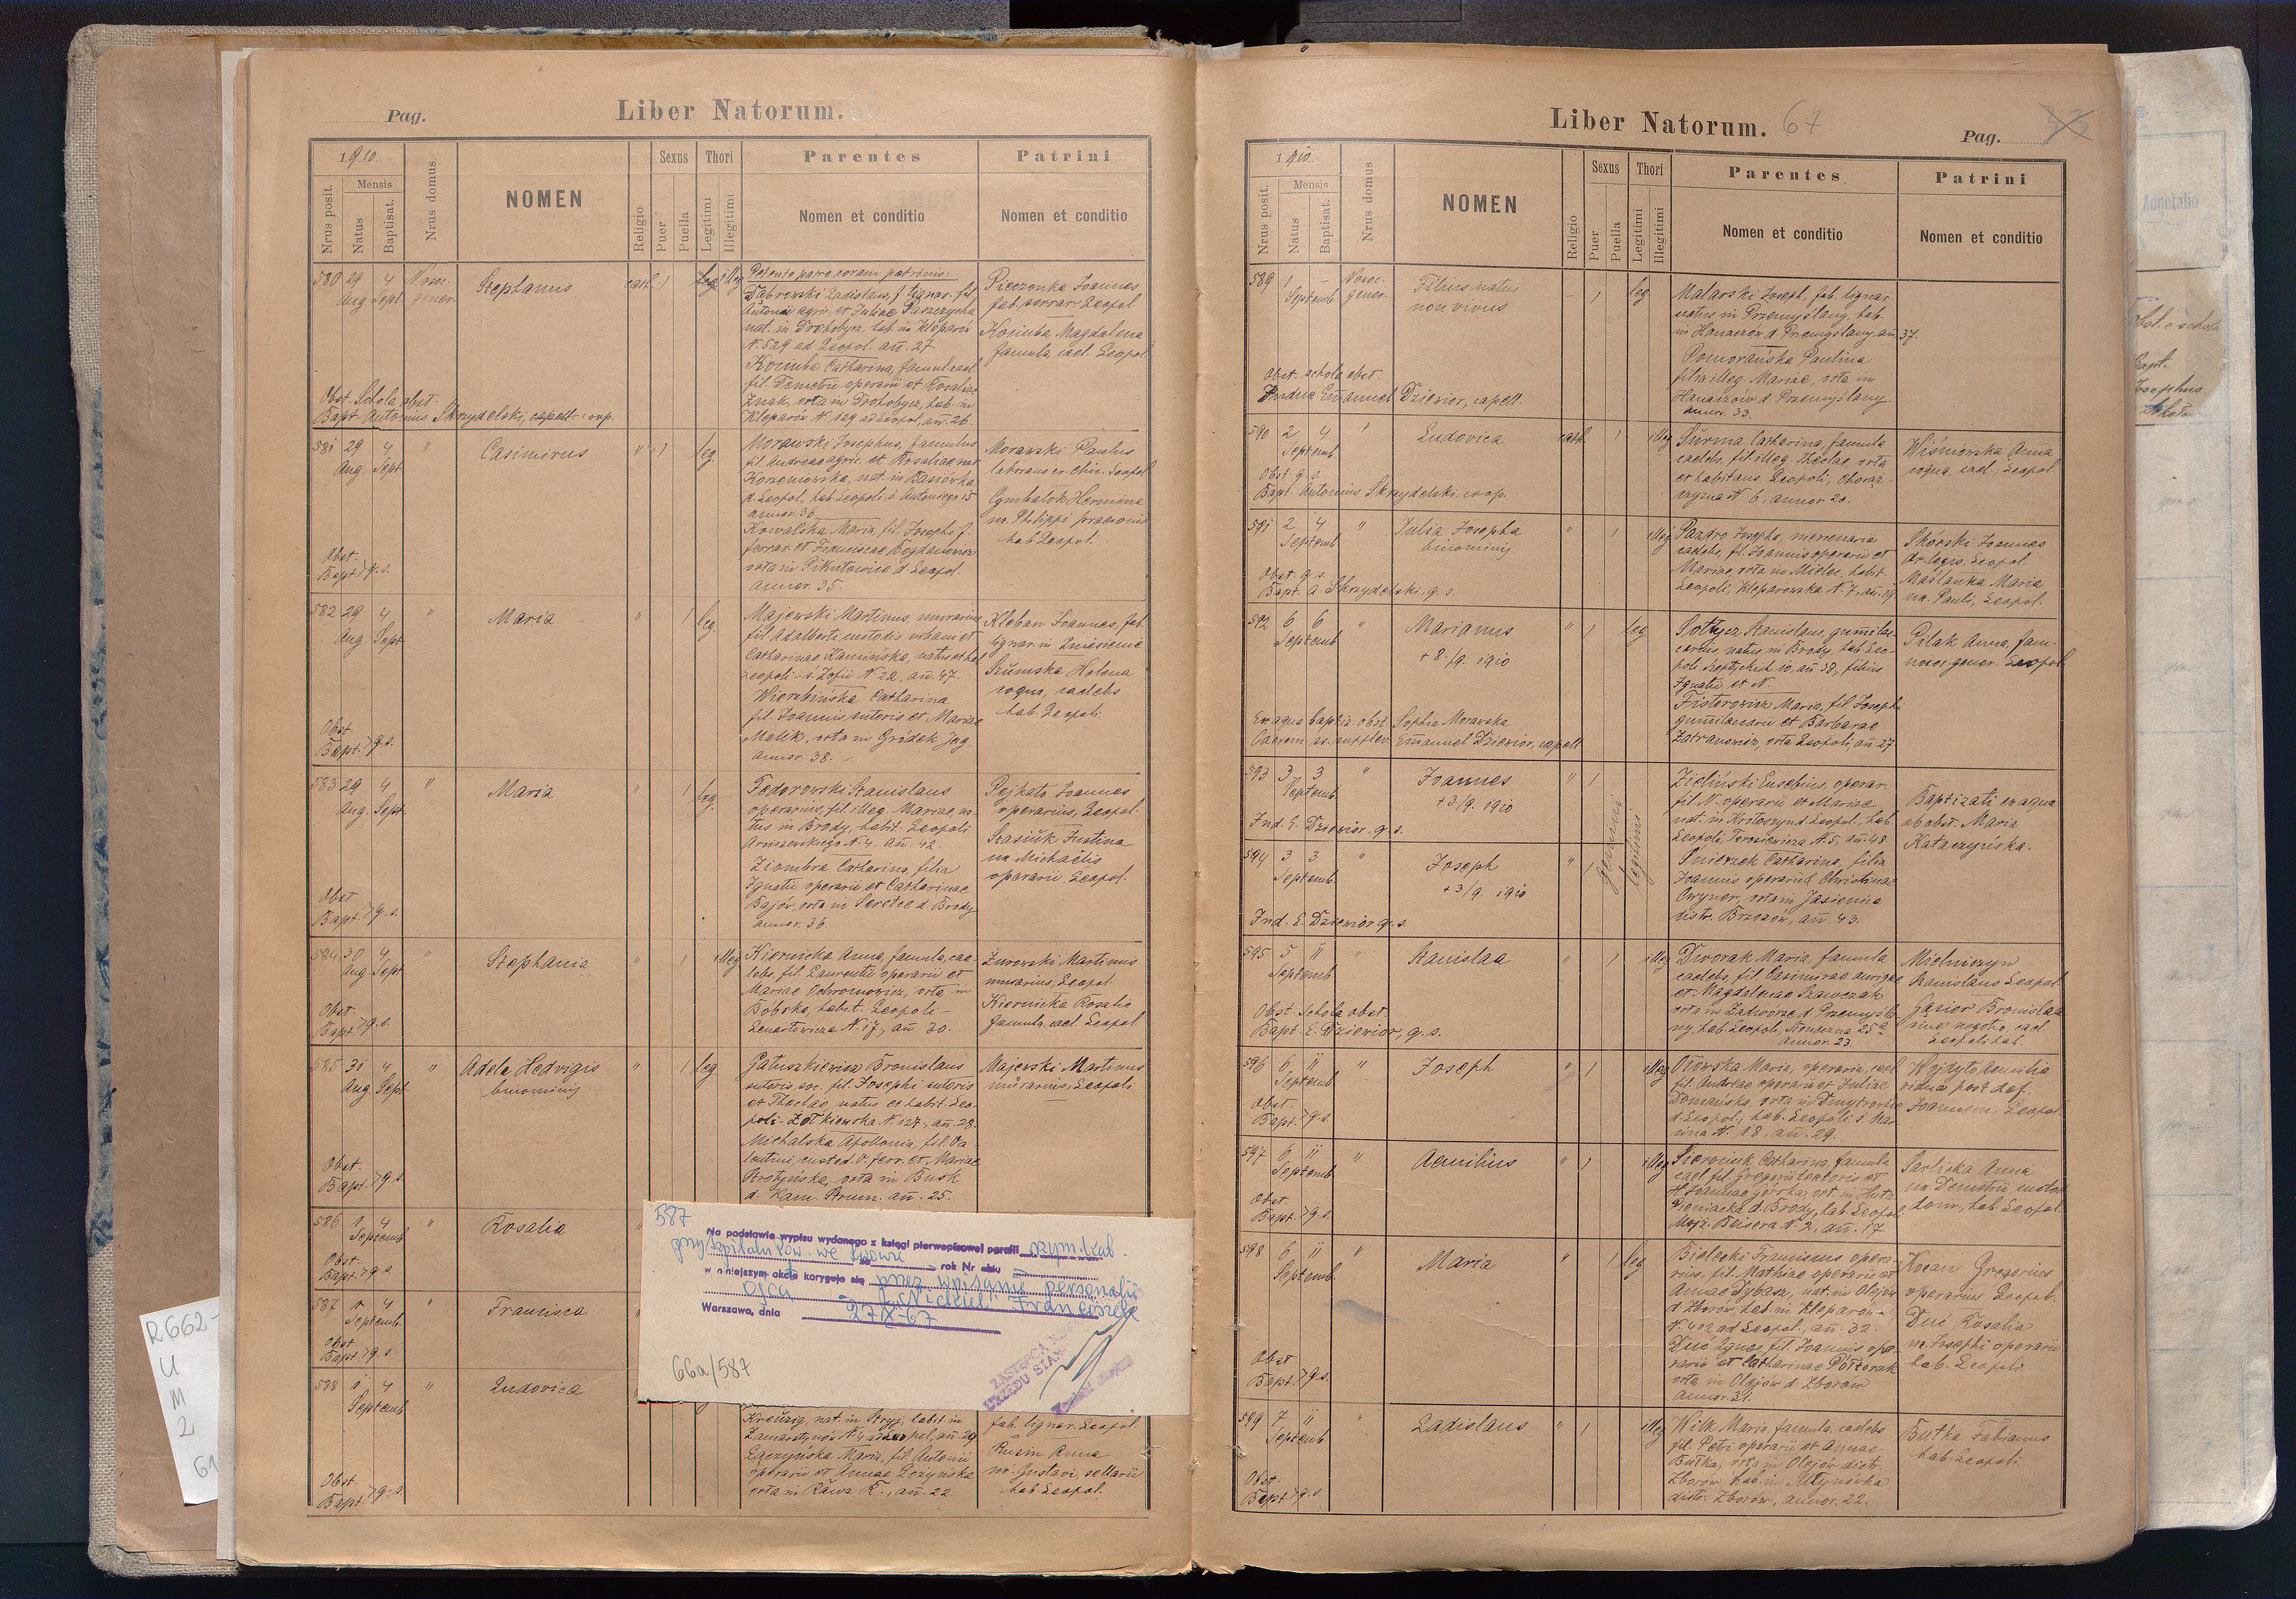 Pag.
Liber Natorum.
1910
Nrus posit.
Mensis
Natus
Baptisat.
Nrus domus
NOMEN
Religio
Sexus
Puer
Puella
Thori
Legitimi
Illegitimi
Parentes
Nomen et conditio
Patrini
Nomen et conditio
580 29 4 Nosoc. Stephanus cath. 1 illeg
Aug Sept gener.
Petente patre coram patrinis:
Dąbrowski Ladislaus, f. lignar. fil.
Antonii agric. et Juliae Paszczycha
nat. in Drohobycz, hab. in Kleparów
N. 529 ad Leopol. añ. 27.
Koziuba Catharina, famul. cael.
fil. Demetrii operarii et Rosaliae
Znak, orta in Drohobycz, hab. in
Kleparów N. 129 ad Leopol, añ. 26.
Pieczonka Joannes
fab. ferrar. Leopol.
Koziuba Magdalena
famula, cael. Leopol.
Obst. Schola obst.
Bapt. Antonius Skrzydelski, coop.
581 29 4 " Casimirus " 1 leg.
Aug. Sept
Morawski Josephus, famulus
fil. Andreae agric. et Rosaliae
Korzeniowska, nat. in Basiówka
d. Leopol, hab. Leopoli
annor. 36
Kowalska Maria, fil. Josephi f.
ferrar. et Franciscae Bogdanowicz
orta in Pikułowice d. Leopol.
annor. 35.
Morawski Paulus
Leopol
Cymbalok Hermina
ux. Philippi praeconis
hab. Leopol.
Obst.
Bapt. q. s.
582 29 4 " Maria " 1 leg.
Aug Sept
Majewski Martinus, murarius
fil. Adalberti custodis urbani et
Catharinae Kamińska, natus et hab
Leopoli - ś. Zofii N. 22, añ. 47.
Wierzbińska Catharina
fil. Joannis sutoris et Mariae
Malik, orta in Gródek Jag.
annor. 38.
Kleban Joannes, fab.
lignar. in Zniesienie
Szumska Helena
coqua, caelebs
hab. Leopoli.
Obst.
Bapt. q.s.
583 29 4 " Maria " 1 leg.
Aug. Sept.
Fedorowski Stanislaus
operarius, fil. illeg. Mariae, na-
tus in Brody, habit. Leopoli
Arciszewskiego N. 4. añ. 42.
Ziombra Catharina, filia
Ignatii operarii et Catharinae
Bajór, orta in d. Brody
annor. 36
Joannes
operarius, Leopol.
Stasiuk Justina
ux. Michaëlis
operarii, Leopol.
Obst
Bapt. q. s.
584 30 4 " Stephania " 1 illeg
Aug Sept
Kiernicka Anna, famula, cae-
lebs, fil. Laurentii operarii et
Mariae Ochromowicz, orta in
Bóbrka, habit. Leopoli -
Lenartowicza N. 17, añ. 30.
Żurowski Martinus
murarius, Leopol
Kiernicka Rosalia
famula, cael. Leopol.
Obst.
Bapt. q. s.
585 31 4 " Adela Hedvigis " 1 leg.
Aug Sept. binominis
Bronislaus
sutoris soc. fil. Josephi sutoris
et Theclae natus et habit. Leo-
poli - Żółkiewska N. 127, añ. 28.
Michalska Apollonia, fil. Va-
lentini, custod. v. ferr. et Mariae
orta in Busk
d. Kam. Strum. añ. 25.
Majewski Martinus
murarius, Leopoli
Obst.
Bapt. q. s.
586 1 4 " Rosalia "
Septemb
Obst.
Bapt. q s
587 1 4 " Francisca
Septemb.
Obst.
Bapt. q. s.
588 1 4 " Ludovica "
Septemb
Kreuzig, nat. in Stryj, habit. in
Zamarstynów N. 4 ad Leopol, añ. 29
Łączyńska Maria, fil. Antonii
operarii et Annae Łozyńska
orta in Rawa R., añ. 22.
fab. lignar. Leopol
Anna
ux. Gustavi, sellarii
hab. Leopol.
Obst.
Bapt. q. s.
587
Na podstawie wypisu wydanego z księgi pierwopisowej parafii rzym. kat.
przy szpitalu Pow. we Lwowie
za rok Nr aktu
w niniejszym akcie koryguje się przez wpisanie personalii
ojca Franciszek
Warszawa, dnia 27 IX-67
66a/587
ZASTĘPCA
URZĘDU STANU
R 662-
U
M
2
61
Liber Natorum. 67
Pag.
1910.
Nrus posit.
Mensis
Natus
Baptisat.
Nrus domus
NOMEN
Religio
Sexus
Puer
Puella
Thori
Legitimi
Illegitimi
Parentes
Nomen et conditio
Patrini
Nomen et conditio
589 1 - Nosoc. Filius natus - 1 leg
Septemb. gener. non vivus
Malarski Joseph, fab. lignar.
natus in Przemyślany, hab.
in Hanaczów d. Przemyślany, añ. 37.
Pomorańska Paulina
filia illeg. Mariae, orta in
Hanaczów d. Przemyślany
annor. 33.
Obst. schola obst.
Induxit Emanuel Dziewior, capell.
590 2 4 " Ludovica cath. 1 illeg
Septemb
Surma Catharina, famula
caelebs, fil. illeg. Theclae, orta
et habitans Leopoli, Chorąż-
czyzna N. 6, annor. 20.
Wiśniowska Anna
coqua, cael, Leopol
Obst. q. s.
Bapt. Antonius Skrzydelski coop.
591 2 4 " Julia Josepha " 1 illeg
Septemb binominis
Pazdro Josepha, mercenaria
caelebs, fil. Joannis operarii et
Mariae, orta in Mielec, habit.
Leopoli, Kleparowska N. 7, añ. 19
Skórski Joannes
Leopol
Maślanka Maria
ux. Pauli, Leopol.
Obst. q. s.
Bapt. A. Skrzydelski, q. s.
592 6 6 " Marianus " 1 leg
Septemb + 8./9. 1910
Sołtysz Stanislaus,
natus in Brody, hab. Leo-
poli, Szeptyckich 10, añ. 38, filius
Ignatii et N.
Maria, fil. Josephi
et Barbarae
orta Leopoli, añ. 27
Pilak Anna, fam.
nosoc. gener. Leopol
Ex aqua baptiz. obst. Sophia Morawska
Caerem. ss. supplev. Emanuel Dziewior, capell
593 3 3 " Joannes " 1
Septemb + 3/9. 1910
Ind. E. Dziewior, q. s.
594 3 3 " Joseph " 1
Septemb. + 3/9. 1910
Ind. E. Dziewior q. s.
Gemini
legitimi
Zieliński Eusebius, operar.
fil. N. operarii et Mariae
nat. in Krotoszyn d. Leopol., hab
Leopoli, N. 5, añ. 48.
Śnieżek Catharina, filia
Joannis operarii et Christinae
Cwynar, orta in Jasienica
distr. Brzozów, añ. 43.
Baptizati ex aqua
ab obst. Maria
Kataczyńska.
595 5 11 " Stanislaa " 1 illeg
Septemb
Dworak Maria, famula
caelebs, fil. Casimirae aurigae
et Magdalenae Szawczak
orta in Zadworze d. Przemyśla-
ny, hab. Leopoli, Słoneczna 25a
annor. 23.
Mielniczyn
Stanislaus Leopol.
Gąsior Bronislaa
sine negotio, cael.
Leopoli hab.
Obst. Schola obst.
Bapt. E. Dziewior, q. s.
596 6 11 " Joseph " 1 illeg
Septemb
Maria, operaria, cael.
fil. Andreae operarii et Juliae
Domańska, orta in Dmytrowice
d. Leopol., hab. Leopoli, ś. Mar-
cina N. 18, añ. 29.
Aemilia
vidua post def.
Joannem, Leopol.
Obst.
Bapt. q. s.
597 6 11 " Aemilius " 1 illeg
Septemb
Catharina, famula
cael. fil. Gregorii textoris et
Joannae Górska, ort. in Huta
Pieniacka d. Brody, hab. Leopol,
Mojż. Beisera N. 2, añ. 17
Parliska Anna
ux. Demetrii custod.
dom., hab. Leopol.
Obst
Bapt. q. s.
598 6 11 " Maria " 1 leg
Septemb.
Bielecki Franciscus opera-
rius, fil. Mathiae operarii et
Annae Dybasz, nat. in Olejów
d. Zborów, hab. in Kleparów
N. 402 ad Leopol., añ. 32.
Duć Agnes, fil. Joannis ope-
rarii et Catharinae Półtorak
orta in Olejów d. Zborów
annor. 31.
Kocan Gregorius
operarius Leopol.
Duć Rosalia
ux. Josephi operarii
hab. Leopoli
Obst
Bapt. q. s.
599 7 11 " Ladislaus " 1 illeg
Septemb
Wilk Maria, famula, caelebs
fil. Petri operarii et Annae
Butka, orta in Olejów distr.
Zborów, hab. in Młynówka
distr. Zborów, annor. 22.
Butka Fabianus
hab. Leopoli
Obst.
Bapt. q. s.
Adnotatio